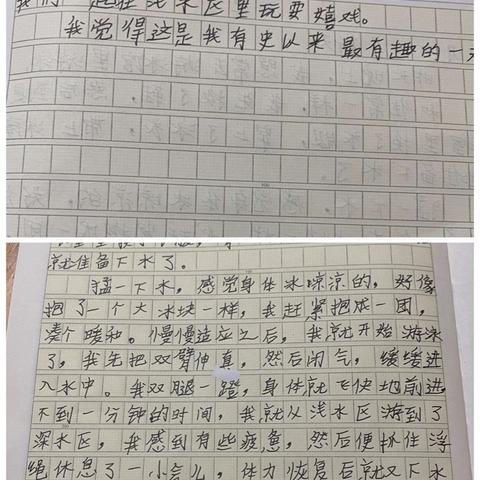 我们一起在浅水区里玩耍嬉戏。
我觉得这是我有史以来最有趣的一天
就准备下水了。
猛一下水，感觉身体冰凉凉的，好像
抱了一个大冰块一样，我赶紧抱成一团，
凑个暖和。慢慢适应之后，我就开始游泳
了，我先把双臂伸直，然后闭气，缓缓进
入水中。我双腿一蹬，身体就飞快地前进，
不到一分钟的时间，我就从浅水区游到了
深水区，我感到有些疲惫，然后便抓住浮
绳休息了一小会儿，体力恢复后就又下水